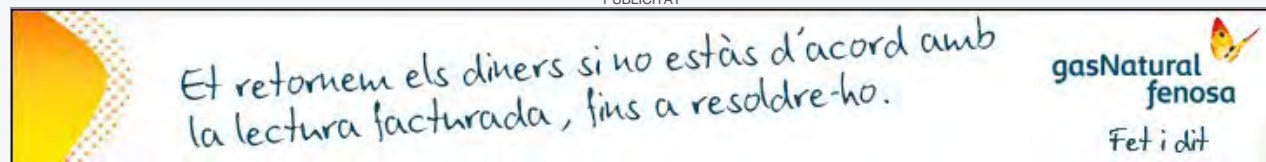 PUBLICITAT
Et retornem els diners si no estàs d'acord amb
la lectura facturada, fins a resoldre-ho.
gasNatural
fenosa
Fet i dit